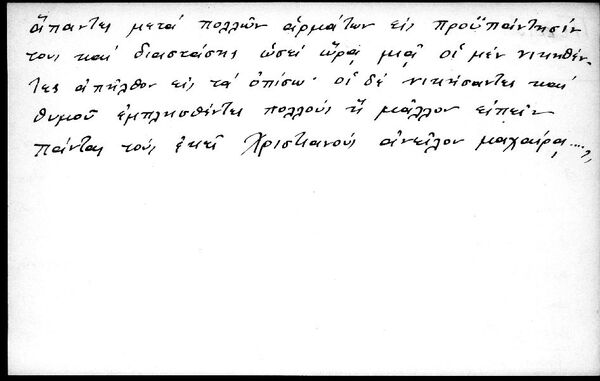 ἅπαντες μετά πολλῶν ἁρμάτων εἰς προϋπάντησίν
τους καί διαστάσης ὡσεί ὥρᾳ μιᾷ οἱ μέν νικηθέν-
τες ἀπῆλθον εἰς τά ὀπίσω· οἱ δέ νικήσαντες καί
θυμοῦ ἐμπλησθέντες πολλούς ἤ μᾶλλον εἰπεῖν
πάντας τούς ἐκεῖ Χριστιανούς ἀνεῖλον μαχαίρᾳ....,,